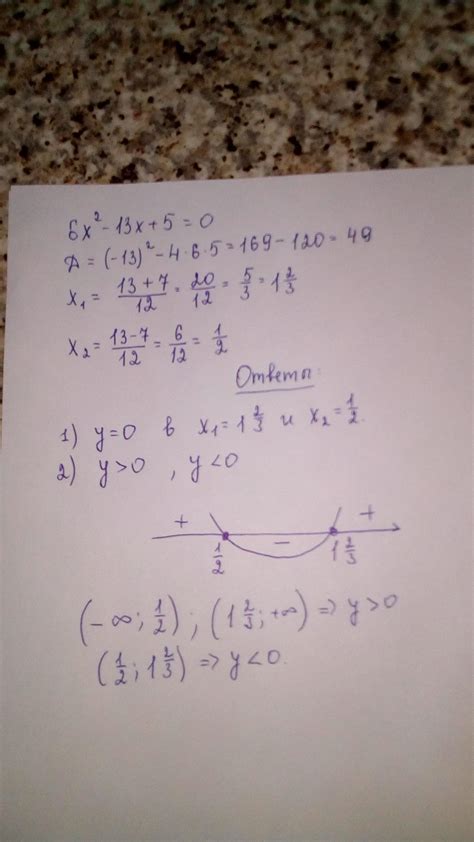 6x² - 13x + 5 = 0
Д = (-13)² - 4·6·5 = 169 - 120 = 49
x₁ = 13+7/12 = 20/12 = 5/3 = 1 2/3
x₂ = 13-7/12 = 6/12 = 1/2
Ответы:
1) y=0 в x₁ = 1 2/3 и x₂ = 1/2.
2) y>0 , y<0
+ - +
1/2 1 2/3
(-∞; 1/2) ; (1 2/3; +∞) => y>0
(1/2; 1 2/3) => y<0.